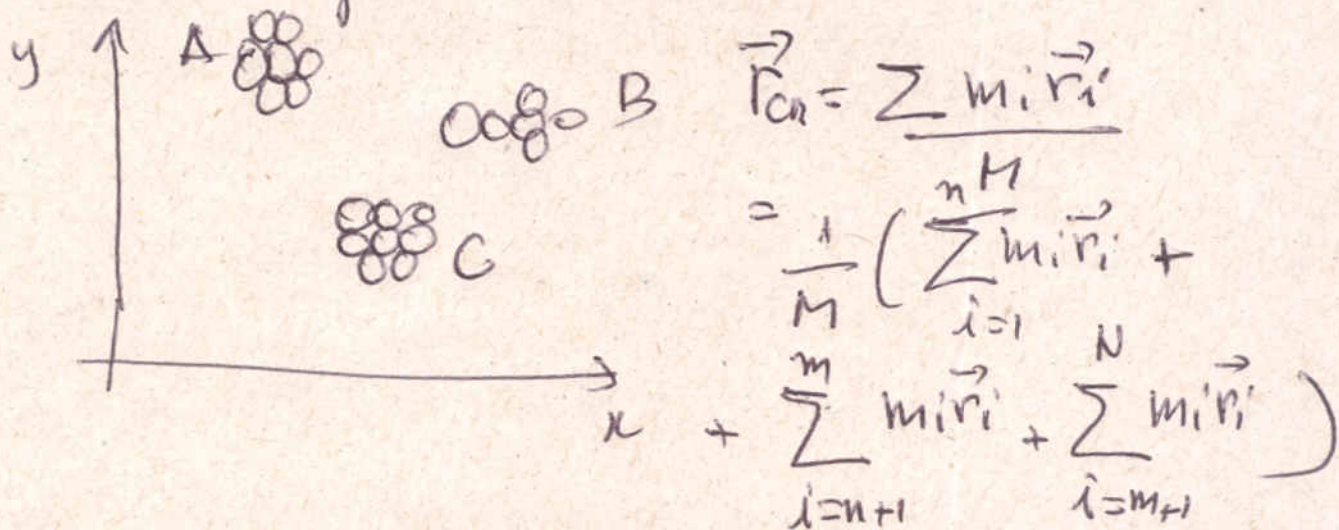 y A B C x
r⃗_{CM} = \frac{\sum m_i r⃗_i}{M}
= \frac{1}{M} ( \sum_{i=1}^{n} m_i r⃗_i +
+ \sum_{i=n+1}^{m} m_i r⃗_i + \sum_{i=m+1}^{N} m_i r⃗_i )